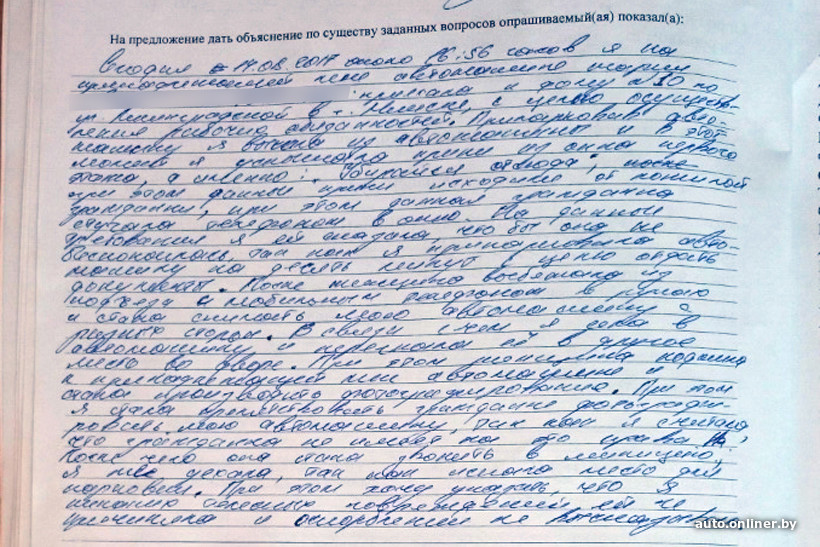 На предложение дать объяснение по существу заданных вопросов опрашиваемый(ая) показал(а):
Сегодня 17.08.2017 около 16:56 часов я на
принадлежащей мне автомашине марки
приехала к дому №30 по
ул. в г. Минске, с целью осущест-
вления рабочих обязанностей. Припарковав авто-
машину я вышла из автомашины и в этот
момент я услышала крики из окна первого
этажа, а именно: "Убирайся отсюда",
при этом данные крики исходили от пожилой
гражданки, при этом данная гражданка
стучала телефоном в окно. На данные
требования я ей сказала что бы она не
беспокоилась, так как я припарковала авто-
машину на десять минут с целью отдать
документы. После женщина выбежала из
подъезда с мобильным телефоном в руках
и стала снимать мою автомашину с
разных сторон. В связи с чем я села в
автомашину и перегнала её в другое
место во дворе. При этом женщина
к принадлежащей мне автомашине и
стала производить фотографирование. При этом
я стала препятствовать гражданке фотографи-
ровать мою автомашину, так как я считала,
что гражданка не имеет на это права.
После чего она стала звонить в милицию,
я же уехала, так как искала место для
парковки. При этом хочу указать, что я
никаких телесных повреждений ей не
причиняла и оскорблений не
auto.onliner.by